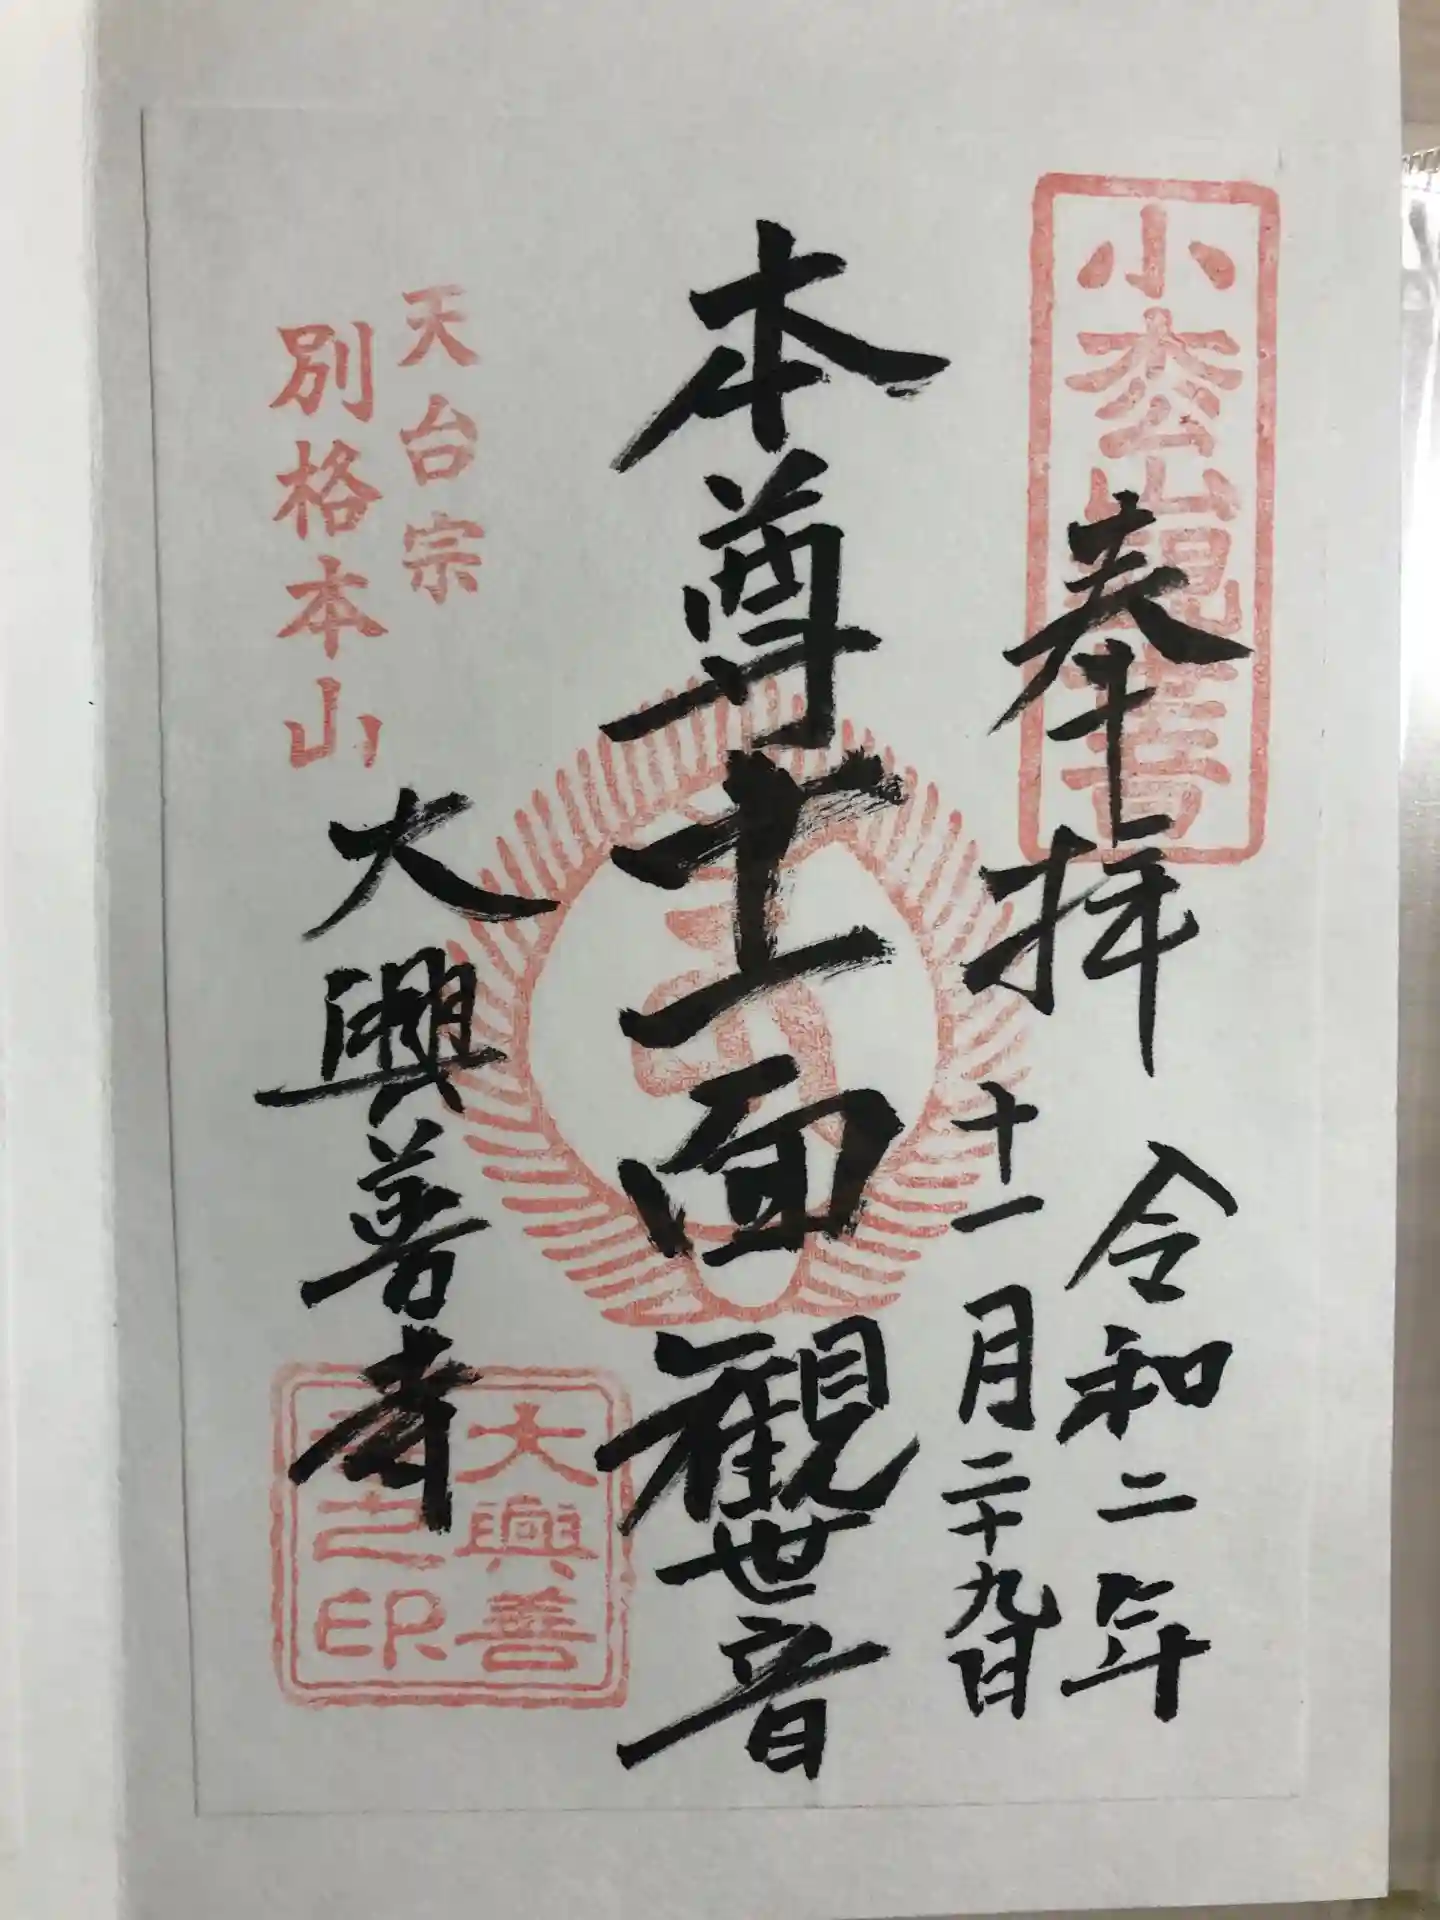 小松山観音
奉拝
令和二年
十一月二十九日
本尊十一面観世音
天台宗
別格本山
大興善寺
大興善
寺之印